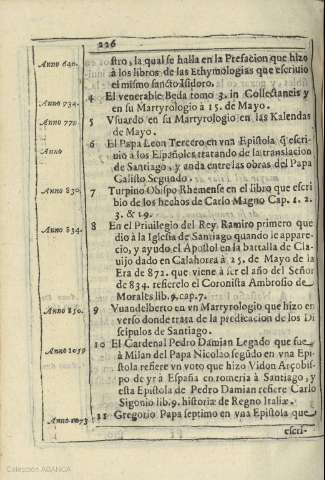 226
Anno 640. stro, la qual se halla en la Prefacion que hizo
à los libros de las Ethymologias que escriuio
el mismo sancto Isidoro.
Anno 734. 4 El venerable Beda tomo 3. in Collectaneis y
en su Martyrologio à 15. de Mayo.
Anno 770. 5 Vsuardo en su Martyrologio en las Kalendas
de Mayo.
Anno 6 El Papa Leon Tercero en vna Epistola q̃ escri-
uio a los Españoles tratando de la translacion
de Santiago, y anda entre las obras del Papa
Calisto Segundo.
Anno 830. 7 Turpino Obispo Rhemense en el libro que escri
bio de los hechos de Carlo Magno Cap. 1. 2.
3. & 19.
Anno 834. 8 En el Priuilegio del Rey Ramiro primero que
dio à la Iglesia de Santiago quando le apare-
cio, y ayudo el Apostol en la battalla de Cla-
uijo dado en Calahorra à 25. de Mayo de la
Era de 872. que viene à ser el año del Señor
de 834. refierelo el Coronista Ambrosio de
Morales lib. 9. cap. 7.
Anno 850. 9 Vuandelberto en vn Martyrologio que hizo en
verso donde trata de la predicacion de los Di
scipulos de Santiago.
Anno 1059 10 El Cardenal Pedro Damian Legado que fue
à Milan del Papa Nicolao segũdo en vna Epi-
stola refiere vn voto que hizo Vidon Arçobis-
po de yr à España en romeria à Santiago, y
esta Epistola de Pedro Damian refiere Carlo
Sigonio lib. 9. historiæ de Regno Italiæ.
Anno 1073 11 Gregorio Papa septimo en vna Epistola que
escri-
Colección ABANCA